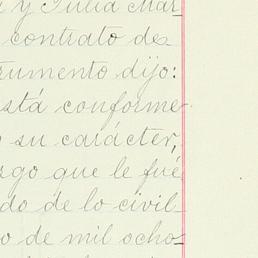 y Julia Mar-
contrato de
rumento dijo:
está conforme
su carácter,
rgo que le fué
do de lo civil
o de mil ocho-